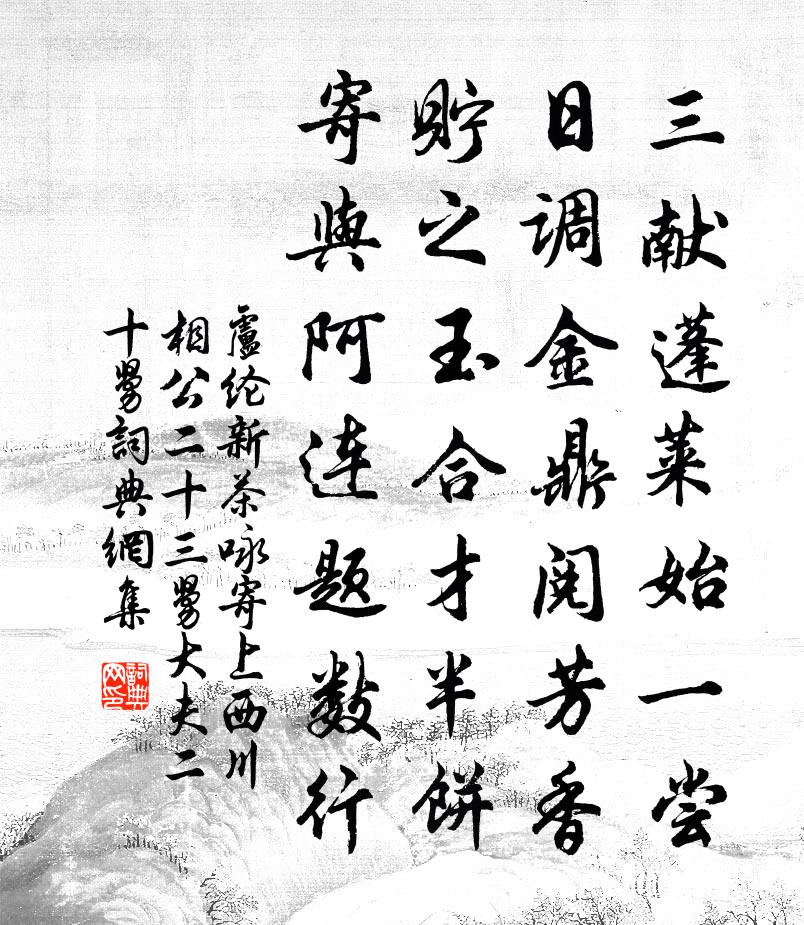 三献蓬莱始一尝
日调金鼎阅芳香
贮之玉合才半饼
寄與阿连题数行
盧纶新茶咏寄上西川
相公二十三舅大夫二
十舅詞典網集
詞典网印